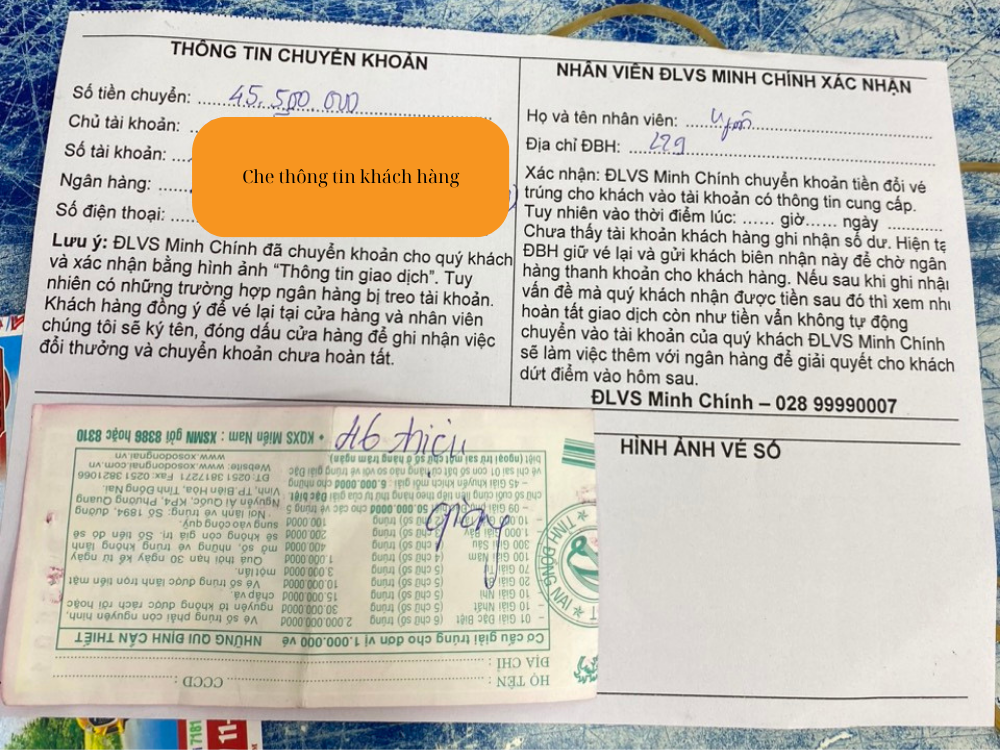 THÔNG TIN CHUYỂN KHOẢN
Số tiền chuyển: 45.500.000
Chủ tài khoản:
Số tài khoản:
Ngân hàng:
Số điện thoại:
Che thông tin khách hàng
Lưu ý: ĐLVS Minh Chính đã chuyển khoản cho quý khách
và xác nhận bằng hình ảnh “Thông tin giao dịch”. Tuy
nhiên có những trường hợp ngân hàng bị treo tài khoản.
Khách hàng đồng ý để vé lại tại cửa hàng và nhân viên
chúng tôi sẽ ký tên, đóng dấu cửa hàng để ghi nhận việc
đổi thưởng và chuyển khoản chưa hoàn tất.
NHÂN VIÊN ĐLVS MINH CHÍNH XÁC NHẬN
Họ và tên nhân viên:
Địa chỉ ĐBH: 229
Xác nhận: ĐLVS Minh Chính chuyển khoản tiền đổi vé
trúng cho khách vào tài khoản có thông tin cung cấp.
Tuy nhiên vào thời điểm lúc: ...... giờ..... ngày ............
Chưa thấy tài khoản khách hàng ghi nhận số dư. Hiện tạ
ĐBH giữ vé lại và gửi khách biên nhận này để chờ ngân
hàng thanh khoản cho khách hàng. Nếu sau khi ghi nhậ
vấn đề mà quý khách nhận được tiền sau đó thì xem nh
hoàn tất giao dịch còn như tiền vẫn không tự động
chuyển vào tài khoản của quý khách ĐLVS Minh Chính
sẽ làm việc thêm với ngân hàng để giải quyết cho khách
dứt điểm vào hôm sau.
ĐLVS Minh Chính – 028 99990007
HÌNH ẢNH VÉ SỐ
46 triệu
HỌ TÊN : CCCD
ĐỊA CHỈ :
Cơ cấu giải trúng cho đơn vị 1.000.000 vé
- 01 Giải Đặc Biệt (6 chữ số) trúng 2.000.000.000đ
- 10 Giải Nhất (5 chữ số) trúng 30.000.000đ
- 10 Giải Nhì (5 chữ số) trúng 15.000.000đ
- 20 Giải (5 chữ số) trúng 10.000.000đ
70 Giải (5 chữ số) trúng 3.000.000đ
100 Giải Năm (4 chữ số) trúng 1.000.000đ
300 Giải Sáu chữ số) trúng 400.000đ
1.000 Giải Bảy chữ số) trúng 200.000đ
10.000 chữ số) trúng 100.000đ
- 09 Giải phụ 50.000.000đ cho các vé trúng 5
chữ số cuối cùng liên tiếp theo hàng thứ tự của giải Đặc biệt.
- 45 Giải khuyến khích mỗi giải : 6.000.000đ cho những
vé chỉ sai 01 con số bất cứ hàng nào so với vé trúng giải Đặc
biệt (ngoại trừ sai một chữ số ở hàng trăm ngàn).
NHỮNG QUI ĐỊNH CẦN THIẾT
Vé số trúng phải còn nguyên hình,
nguyên tờ không được rách rời hoặc
chắp vá.
Vé số trúng được lãnh trọn tiền mặt
một lần.
Quá thời hạn 30 ngày kể từ ngày
mở số, những vé trúng không lãnh
sẽ không còn giá trị. Số tiền đó sẽ
sung vào công quỹ.
Nơi lãnh vé trúng: Số 1894, đường
Nguyễn Ái Quốc, KP4, Phường Quang
Vinh, TP Biên Hòa, Tỉnh Đồng Nai.
ĐT: 0251 3817271 Fax: 0251 3821066
Website: www.xosodongnai.com.vn
www.xosodongnai.vn
• KQXS Miền Nam : XSMN gởi 8386 hoặc 8310
TỈNH ĐỒNG NAI
7181
11-